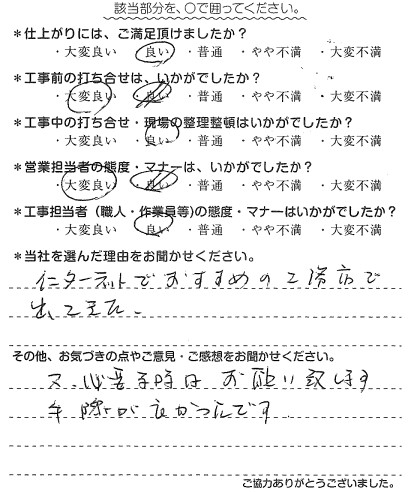 該当部分を、○で囲ってください。
*仕上がりには、ご満足頂けましたか?
・大変良い ・良い ・普通 ・やや不満 ・大変不満
*工事前の打ち合せは、いかがでしたか?
・大変良い ・良い ・普通 ・やや不満 ・大変不満
*工事中の打ち合せ・現場の整理整頓はいかがでしたか?
・大変良い ・良い ・普通 ・やや不満 ・大変不満
*営業担当者の態度・マナーは、いかがでしたか?
・大変良い ・良い ・普通 ・やや不満 ・大変不満
*工事担当者(職人・作業員等)の態度・マナーはいかがでしたか?
・大変良い ・良い ・普通 ・やや不満 ・大変不満
*当社を選んだ理由をお聞かせください。
インターネットでおすすめの工務店で
出てきた。
その他、お気づきの点やご意見・ご感想をお聞かせください。
又、必要な時はお願い致します
手際が良かったです。
ご協力ありがとうございました。